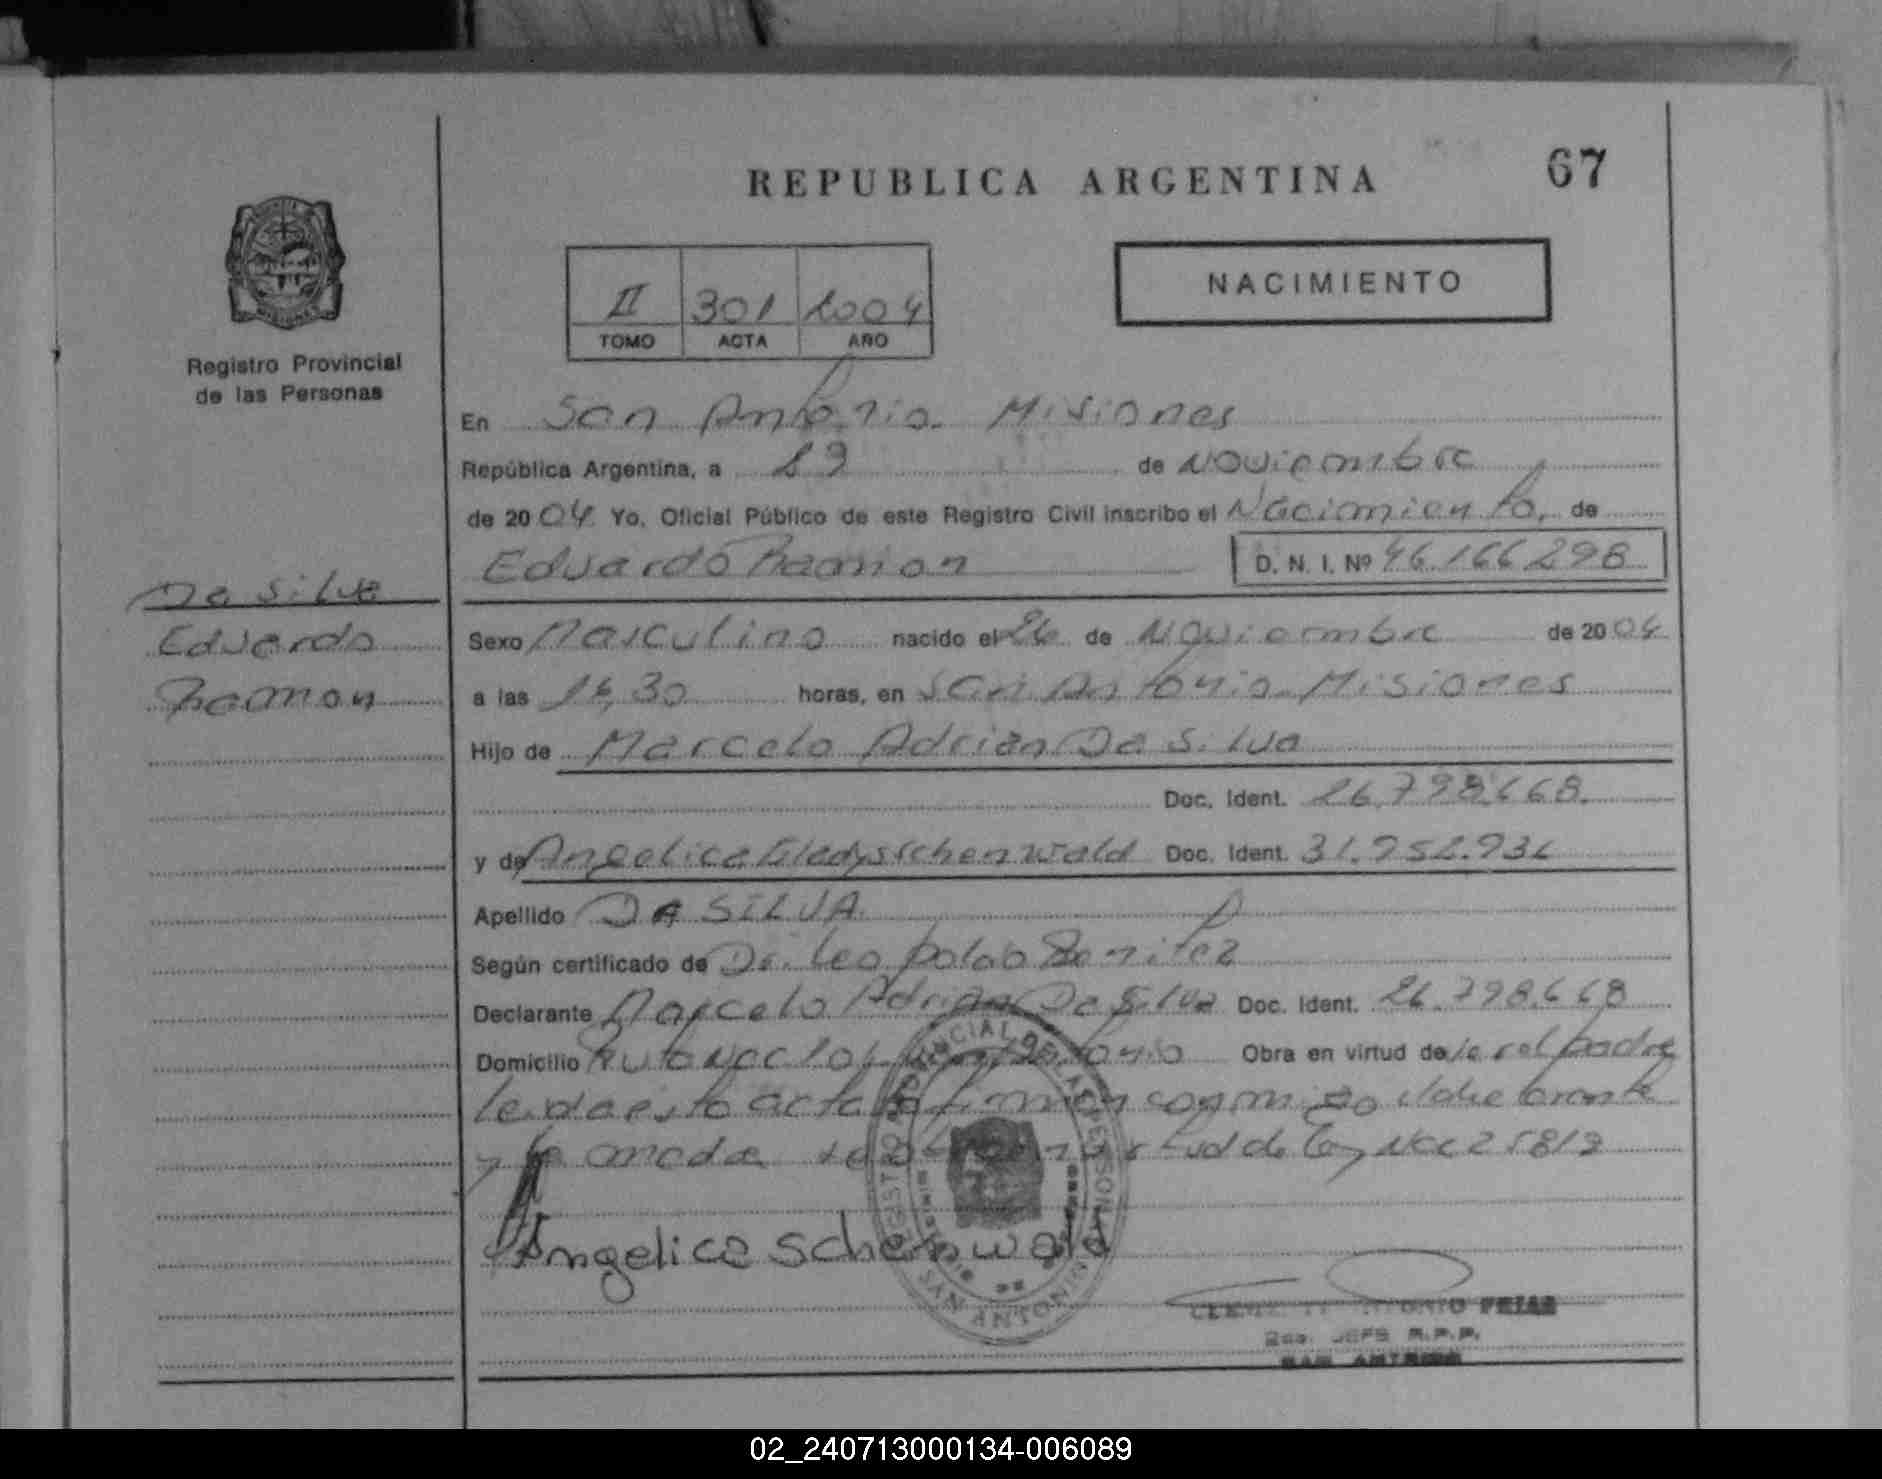 REPUBLICA ARGENTINA
67
NACIMIENTO
II 301 2004
TOMO ACTA AÑO
Registro Provincial
de las Personas
En San Antonio. Misiones
República Argentina, a 29 de Noviembre
de 2004 Yo, Oficial Público de este Registro Civil inscribo el Nacimiento. de
Eduardo Ramon D. N. I. Nº 46.166.298
Da Silva
Eduardo
Ramon
Sexo Masculino nacido el 26 de Noviembre de 2004
a las 16,30 horas, en San Antonio. Misiones
Hijo de Marcelo Adrian Da Silva
Doc. Ident. 26.798.668.
y de Angelica Gladys Schenwald Doc. Ident. 31.952.932
Apellido DA SILVA
Según certificado de Dr. Leopoldo Benitez
Declarante Marcelo Adrian Da Silva Doc. Ident. 26.798.668
Domicilio Ruta Nac 101 San Antonio Obra en virtud de ser el padre
leida esta acta la firman conmigo el declarante
y la madre en virtud de Ley Nac 25819
Angelica Schenwald
REGISTRO PROVINCIAL DE LAS PERSONAS
SAN ANTONIO
ANTONIO FRIAS
2do. JEFE R.P.P.
SAN ANTONIO
02_240713000134-006089